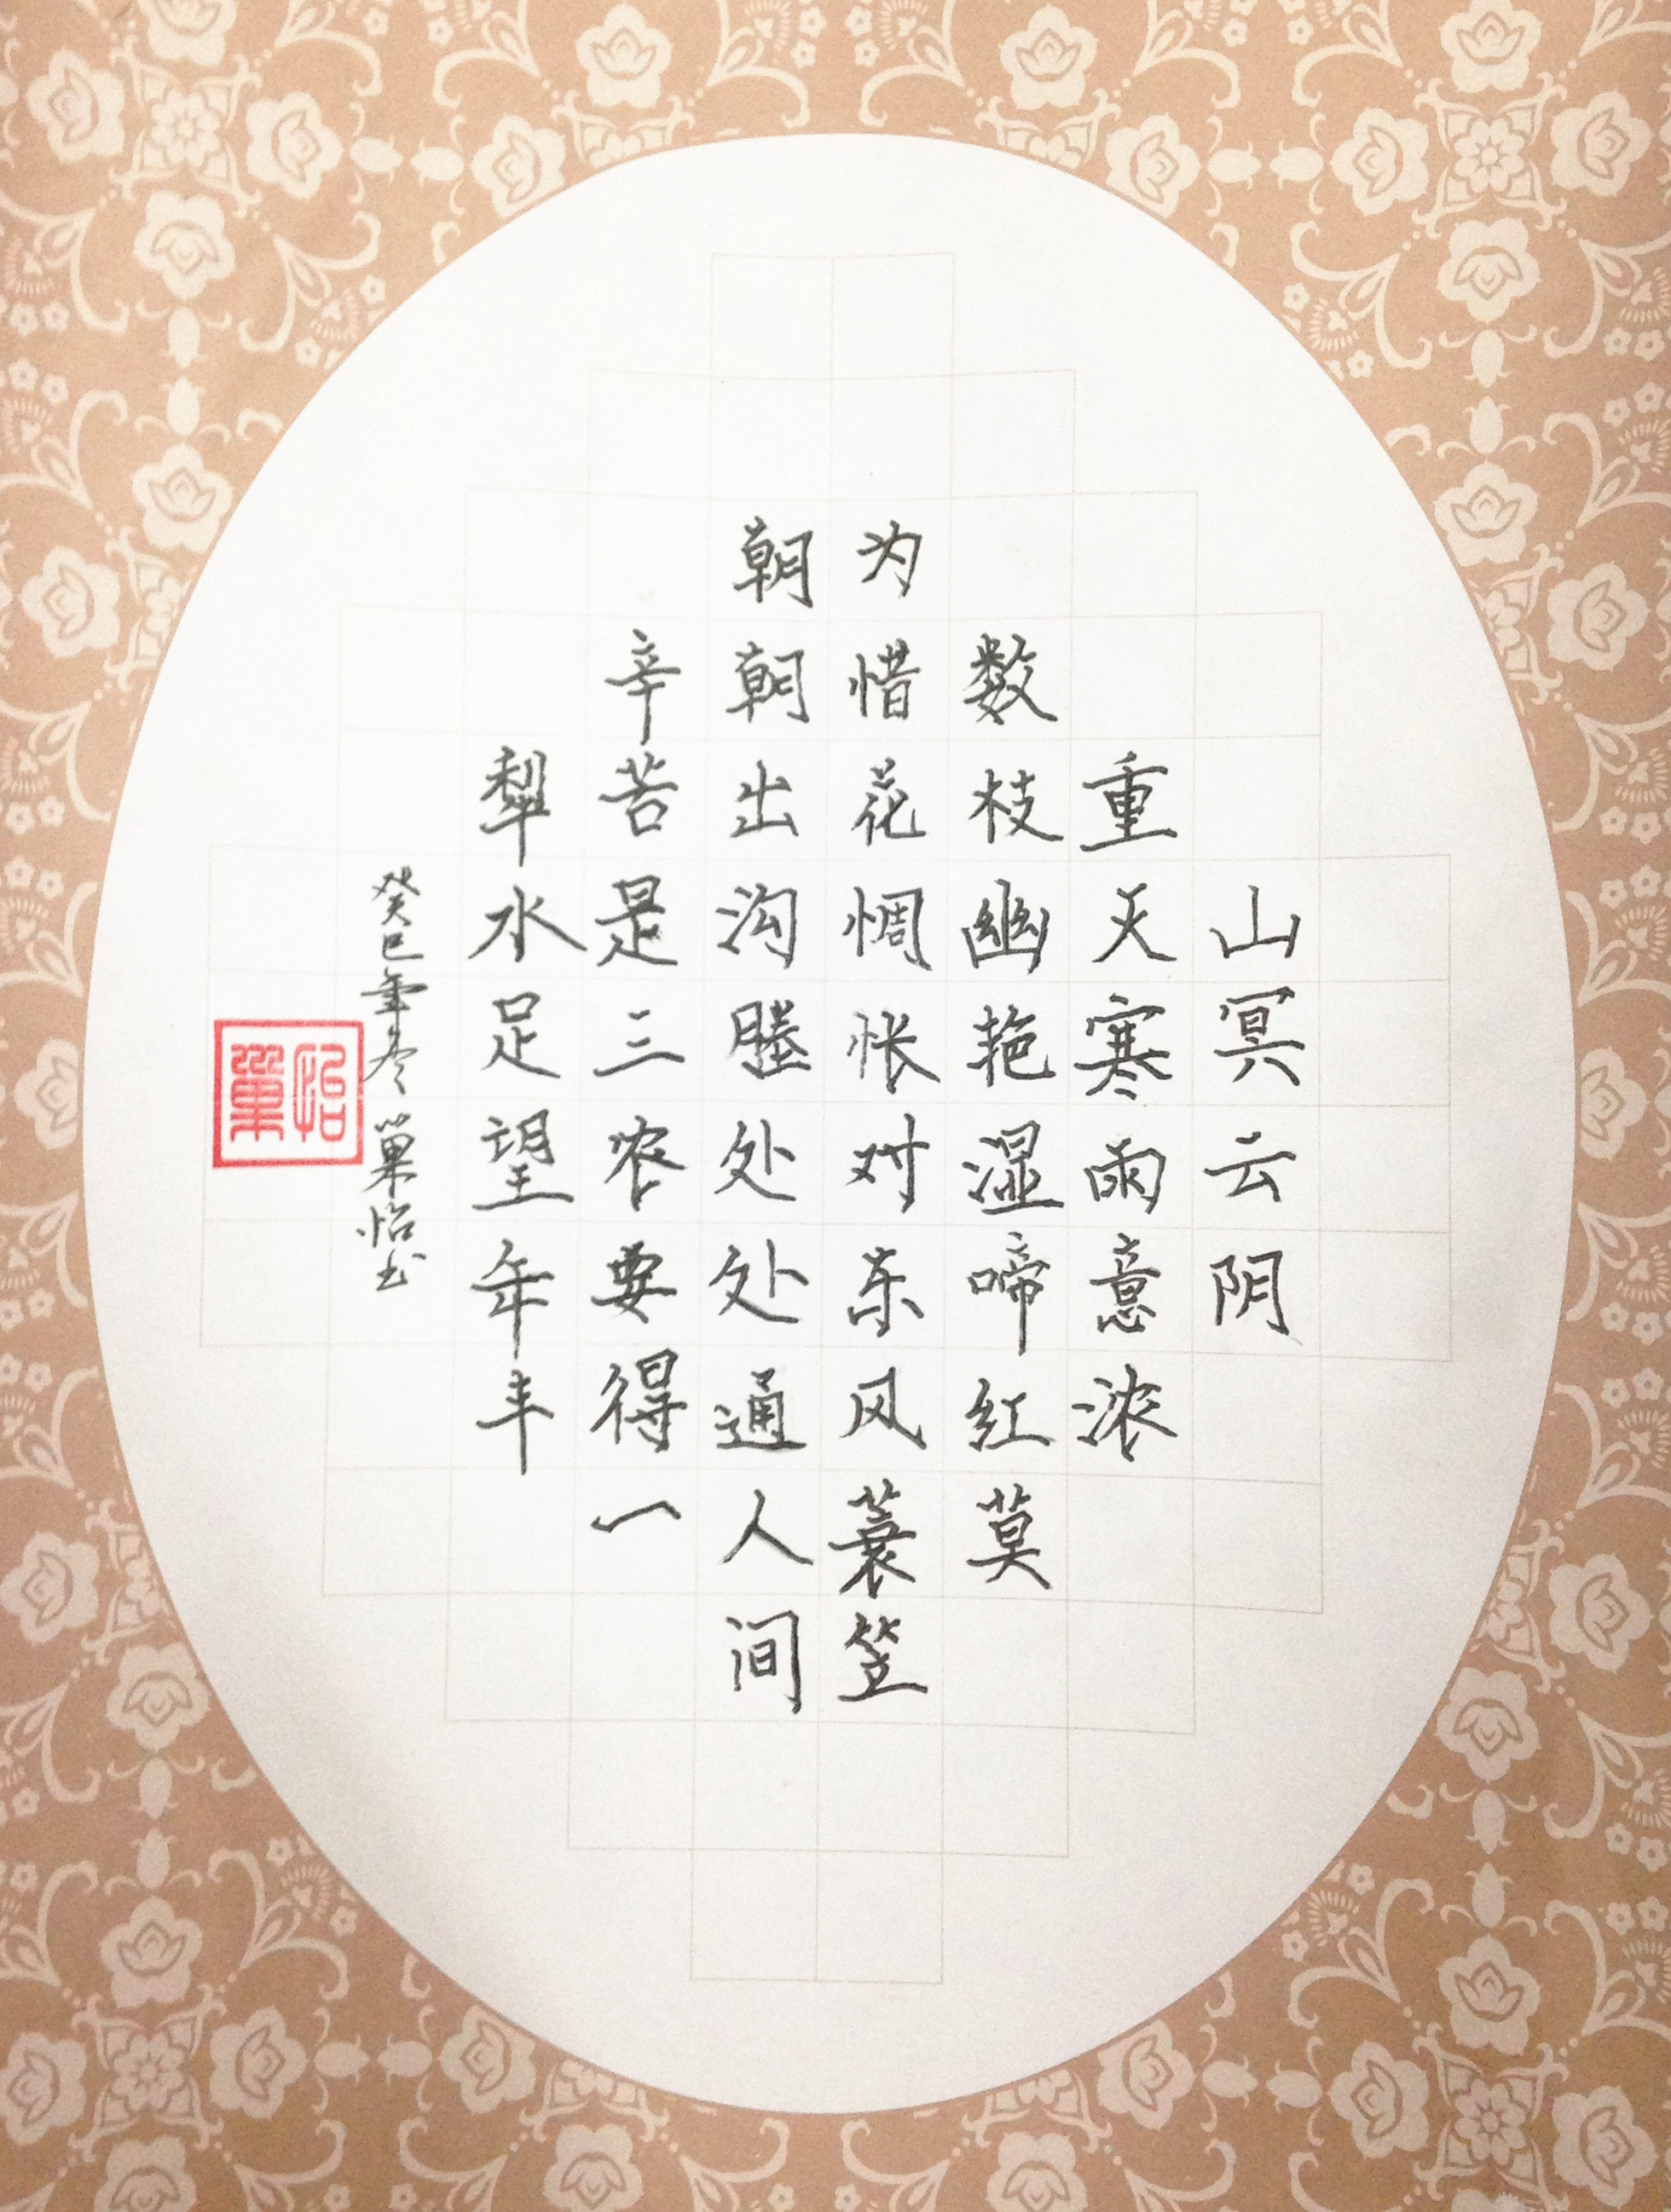 山冥云阴
重天寒雨意浓
数枝幽艳湿啼红莫
为惜花惆怅对东风蓑笠
朝朝出沟塍处处通人间
辛苦是三农要得一
犁水足望年丰
癸巳年冬 巢怡书
怡巢